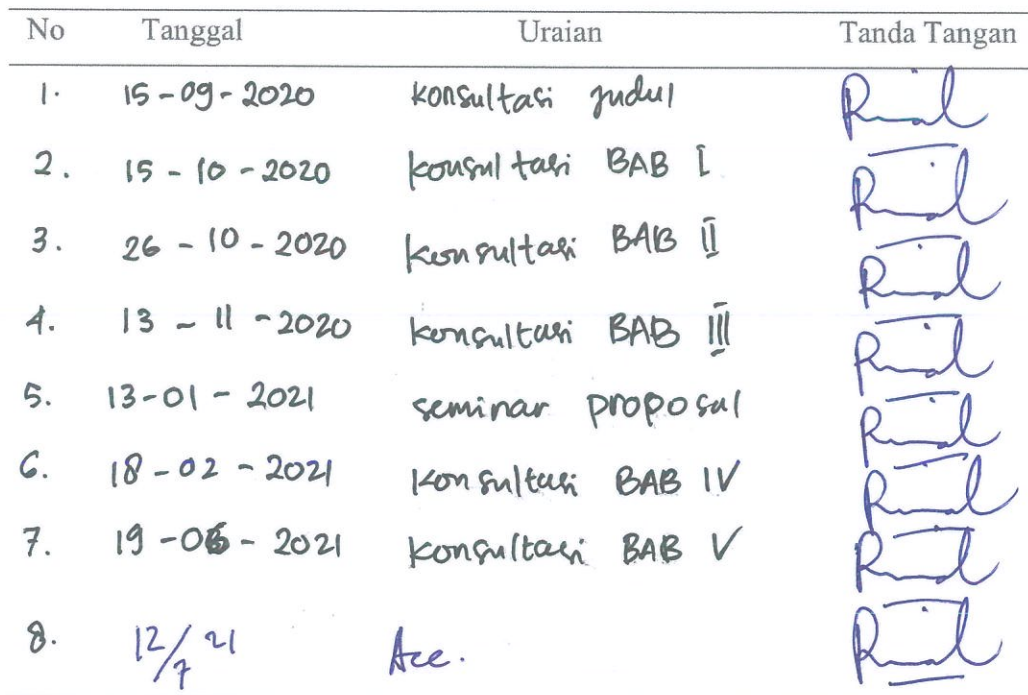 No Tanggal Uraian Tanda Tangan
1. 15-09-2020 konsultasi judul
2. 15-10-2020 konsultasi BAB I
3. 26-10-2020 konsultasi BAB II
4. 13-11-2020 konsultasi BAB III
5. 13-01-2021 seminar proposal
6. 18-02-2021 konsultasi BAB IV
7. 19-06-2021 konsultasi BAB V
8. 12/7 21 Acc.